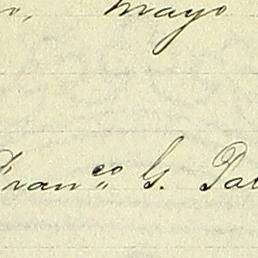 o, Mayo
Franco G. Pa